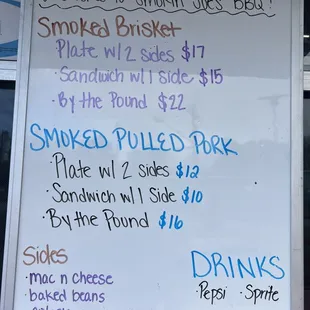 Smokin Joe's BBQ!
Smoked Brisket
Plate w/ 2 sides $17
·Sandwich w/ 1 side $15
·By the Pound $22
SMOKED PULLED PORK
Plate w/ 2 sides $12
·Sandwich w/ 1 Side $10
·By the Pound $16
Sides
·mac n cheese
·baked beans
DRINKS
·Pepsi ·Sprite